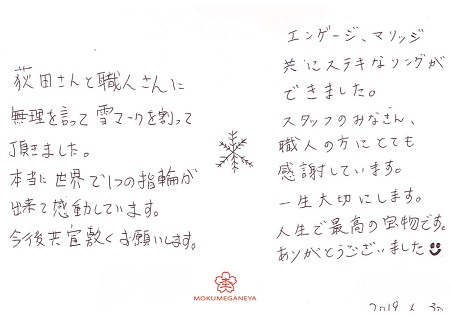 荻田さんと職人さんに
無理を言って雪マークを割って
頂きました。
本当に世界で1つの指輪が
出来て感動しています。
今後共宜敷くお願いします。
エンゲージ、マリッジ
共にステキなリングが
できました。
スタッフのみなさん、
職人の方にとても
感謝しています。
一生大切にします。
人生で最高の宝物です。
ありがとうございました
MOKUMEGANEYA
2019. 6. 30